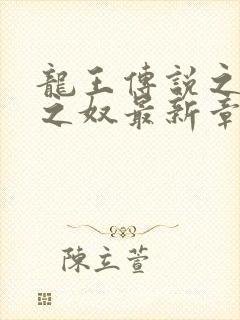 龍王傳説之
之奴最新章
陳立萱